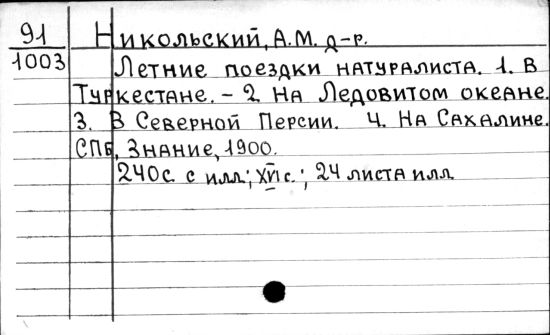 91 Никольский, А.М. д-р.
1003 Летние поездки натуралиста. 1. В
Туркестане. – 2. На Ледовитом океане.
3. В Северной Персии. 4. На Сахалине.
СПб, Знание, 1900.
240с. с илл; XVI с.; 24 листа илл.